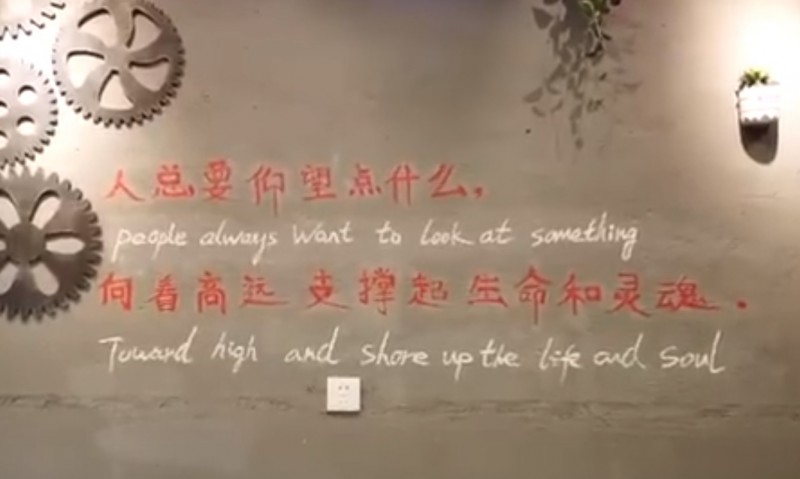 人总要仰望点什么，
people always want to look at something
向着高远 支撑起 生命和灵魂.
Toward high and shore up the life and soul